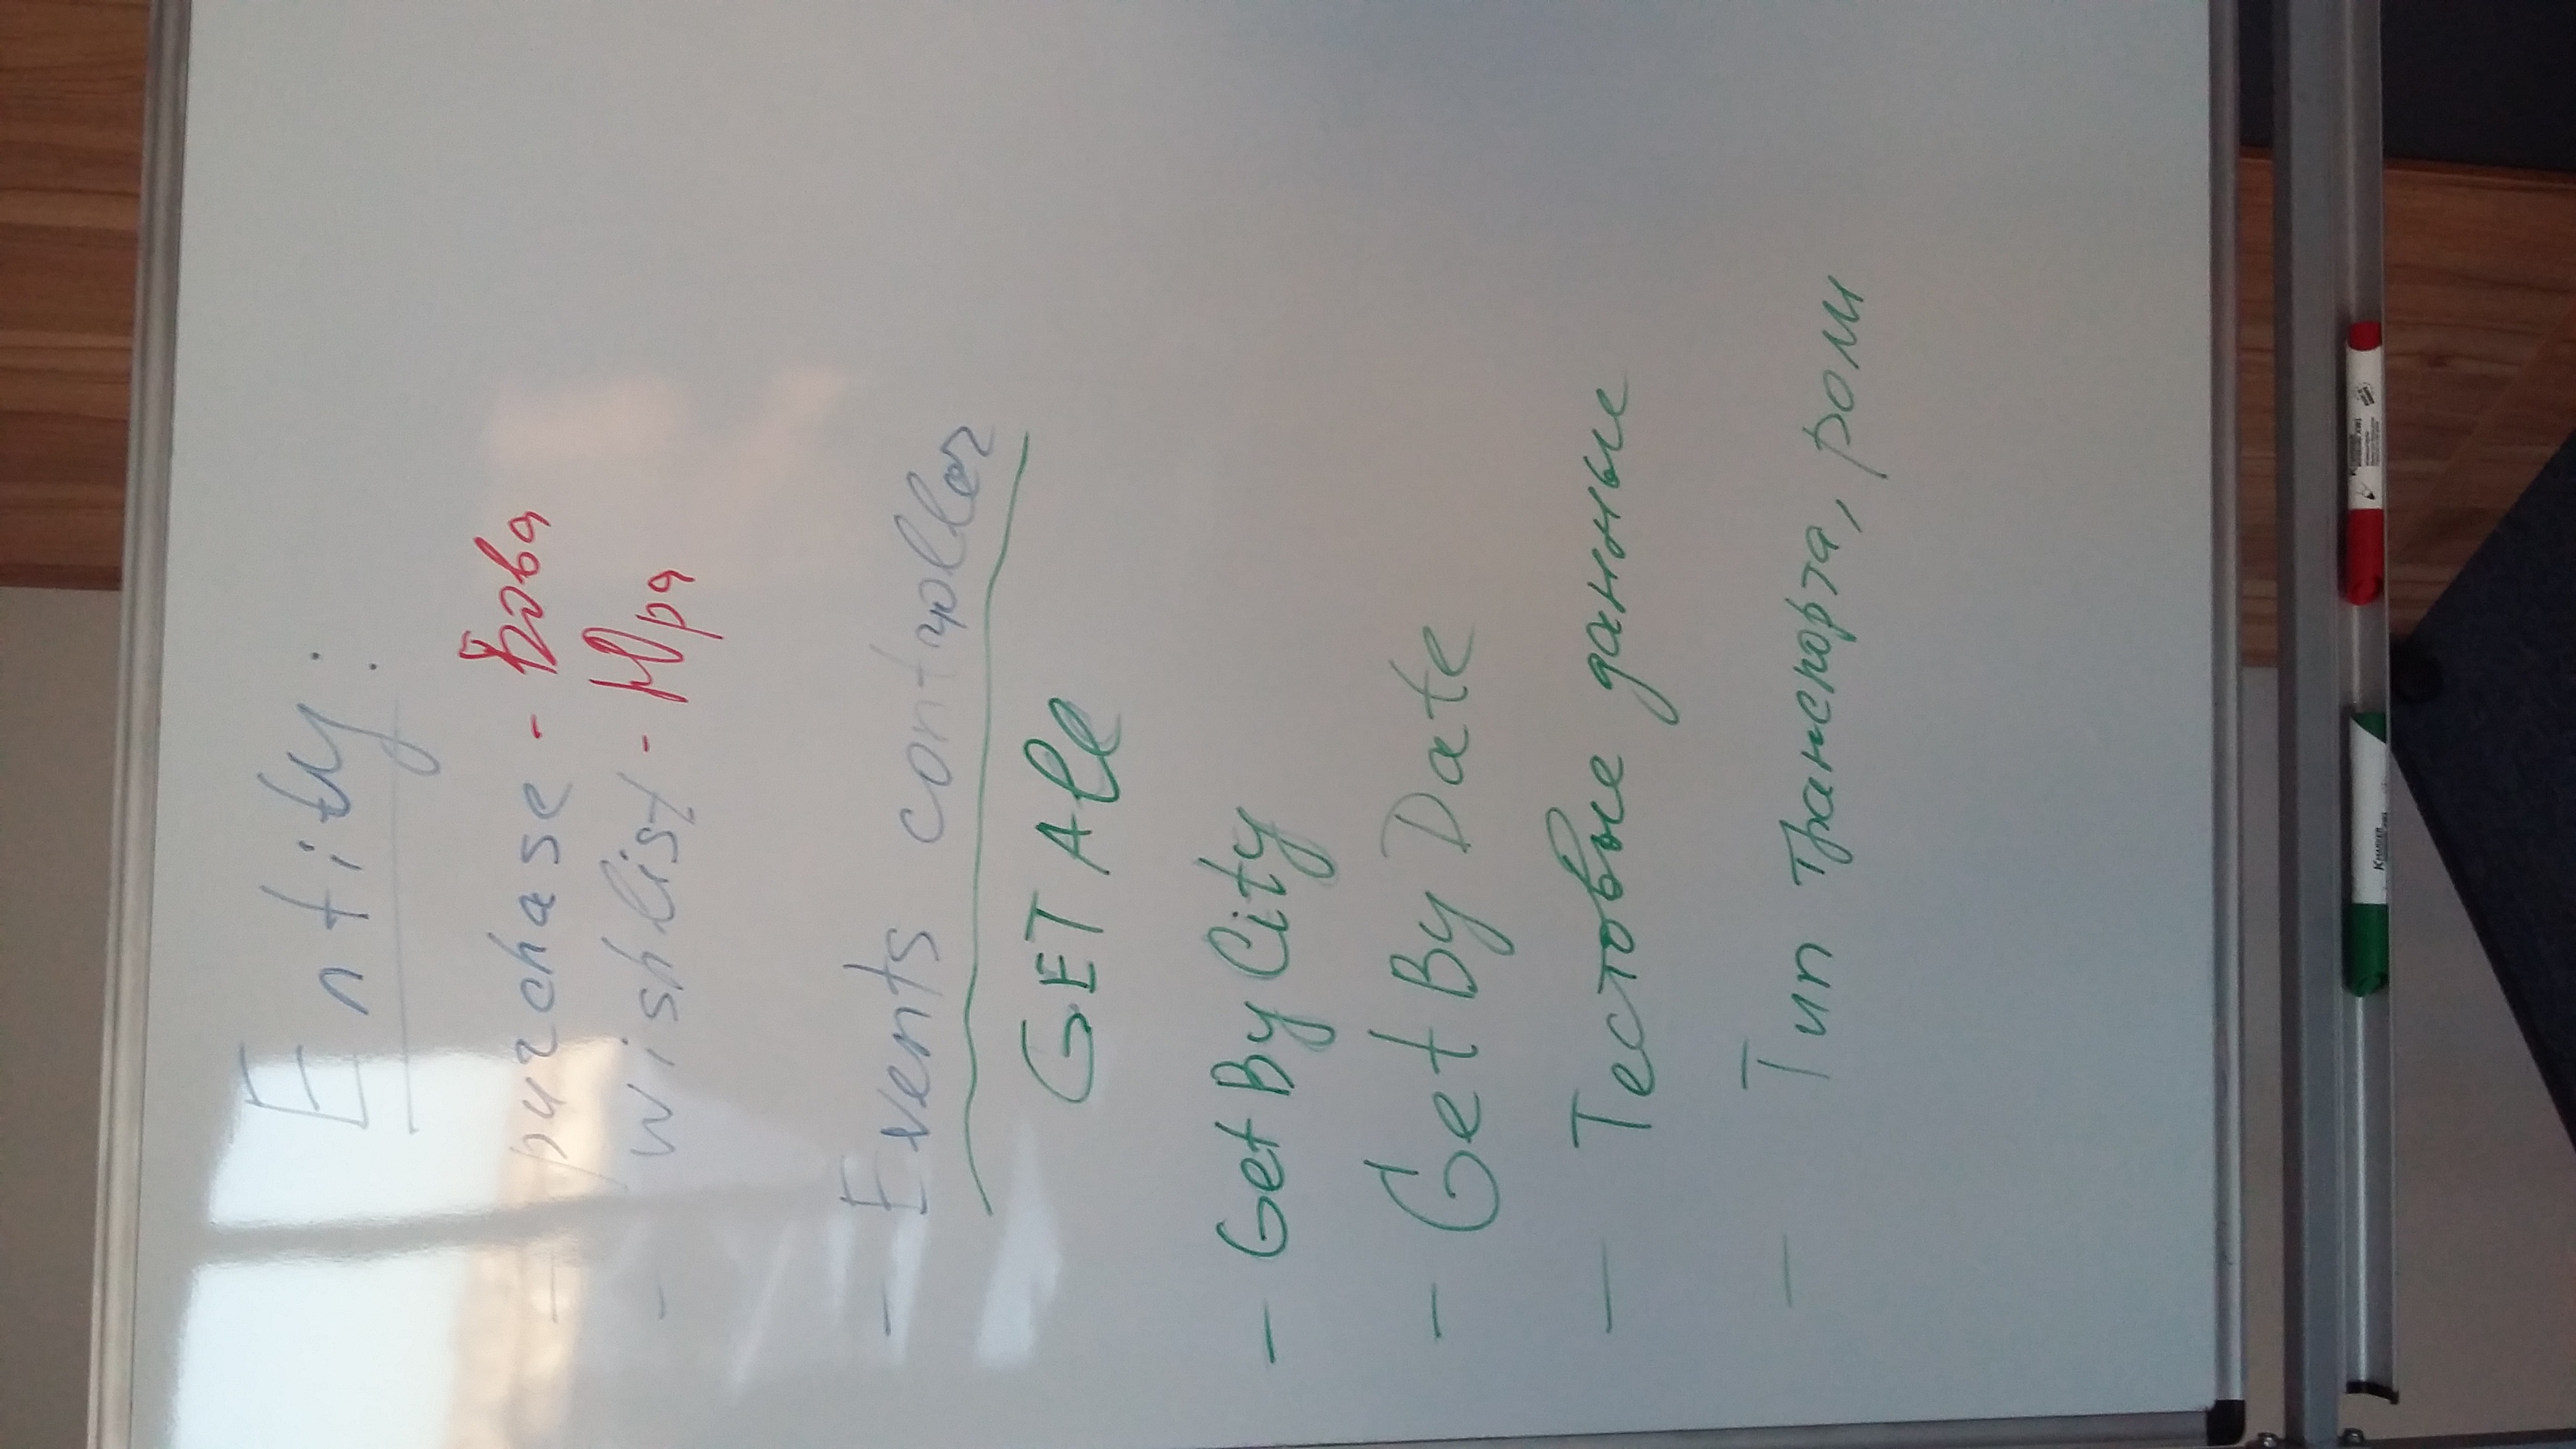 Entity:
- purchase - Вова
- wishlist - Юра
- Events controller
GET All
- Get By City
- Get By Date
- Тестовые данные
- Тип транспорта, роли
K MARKER